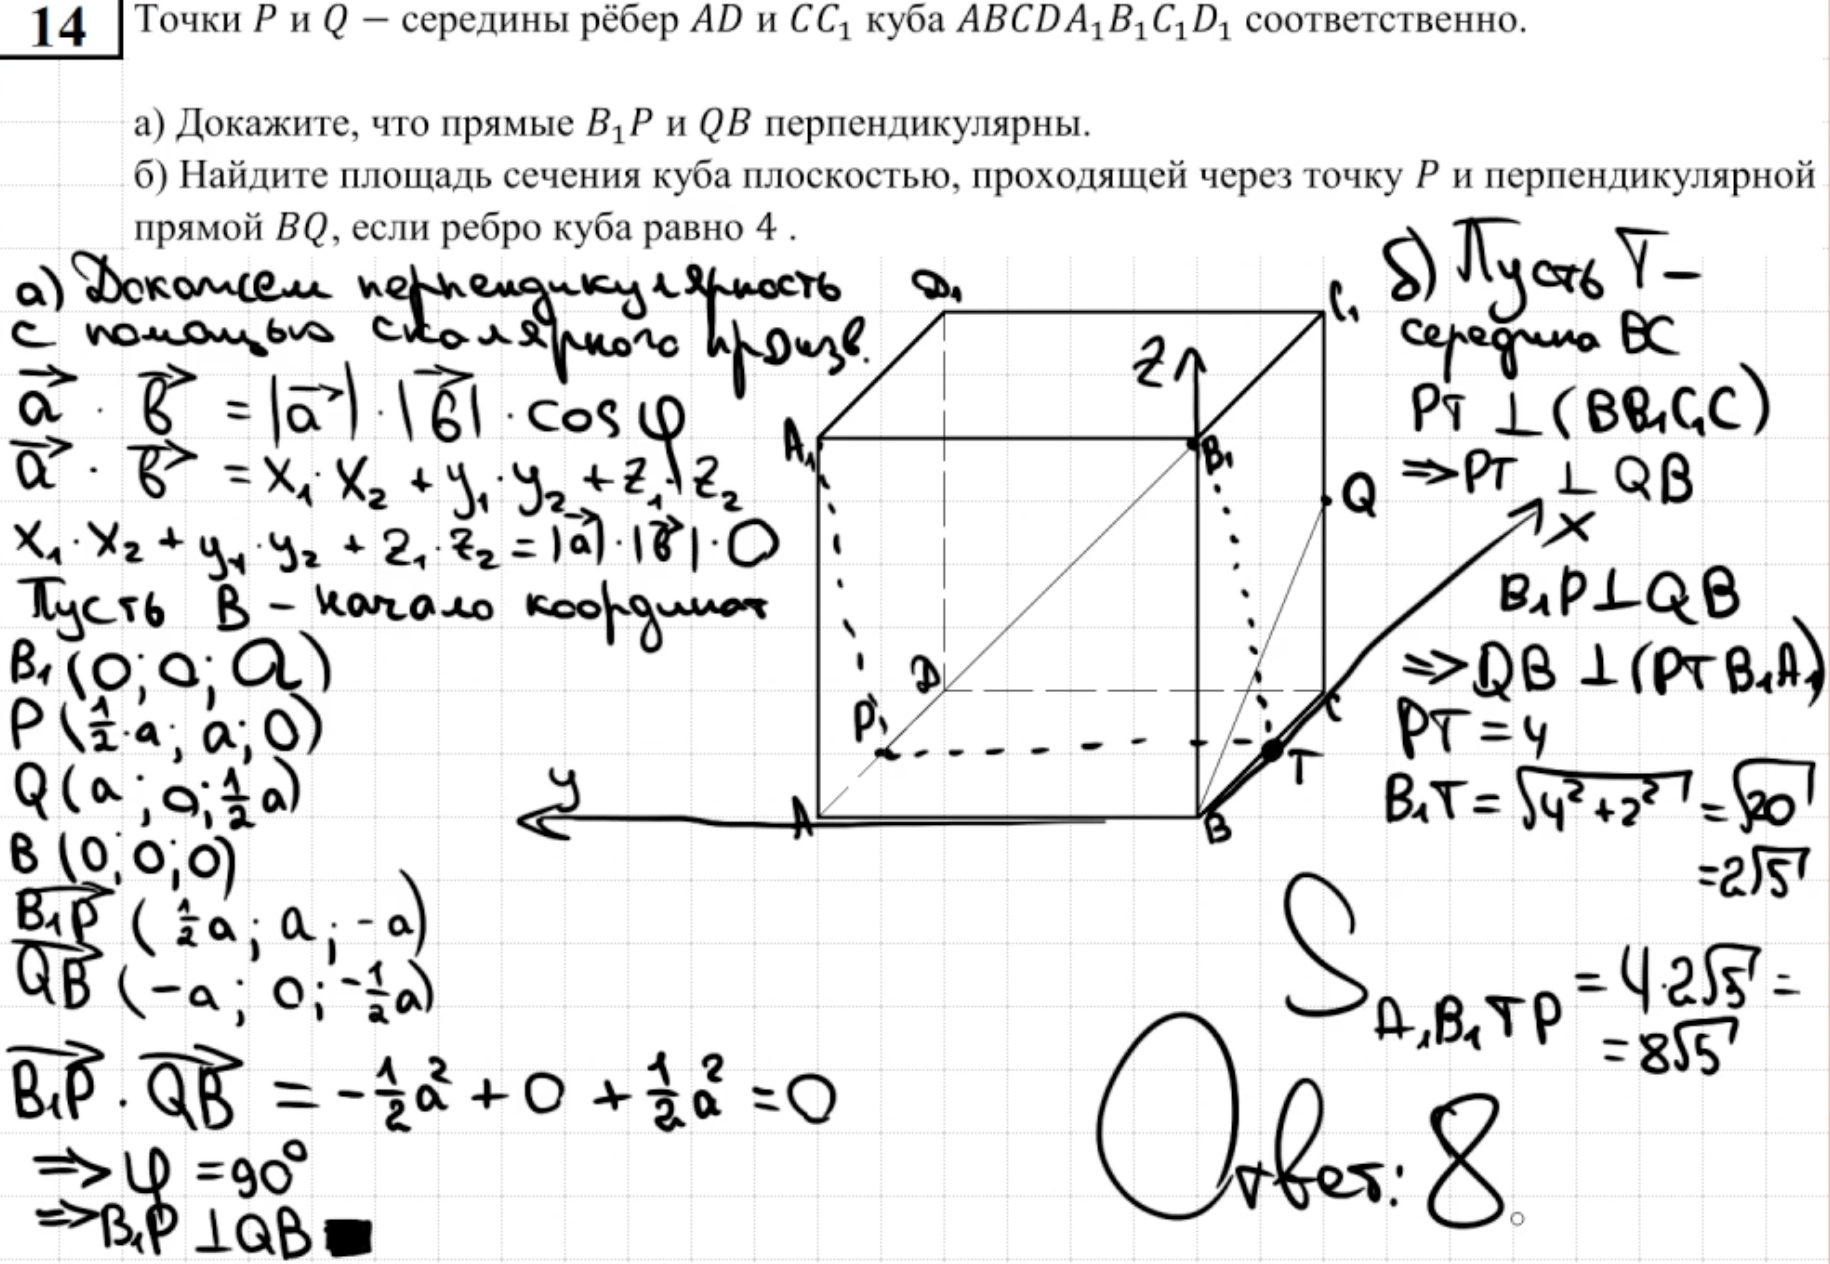 14
Точки P и Q − середины рёбер AD и CC₁ куба ABCDA₁B₁C₁D₁ соответственно.
а) Докажите, что прямые B₁P и QB перпендикулярны.
б) Найдите площадь сечения куба плоскостью, проходящей через точку P и перпендикулярной
прямой BQ, если ребро куба равно 4 .
а) Докажем перпендикулярность
с помощью скалярного произв.
a⃗ · b⃗ = |a⃗| · |b⃗| · cos φ
a⃗ · b⃗ = x₁·x₂ + y₁·y₂ + z₁·z₂
x₁·x₂ + y₁·y₂ + z₁·z₂ = |a⃗|·|b⃗|·0
Пусть B – начало координат
B₁ (0; 0; a)
P (½·a; a; 0)
Q (a; 0; ½a)
B (0; 0; 0)
B₁P (½a; a; -a)
QB (-a; 0; -½a)
B₁P · QB = -½a² + 0 + ½a² = 0
=> φ = 90°
=> B₁P ⊥ QB ■
D₁
C₁
Z
A₁
B₁
Q
X
D
P
C
T
y
A
B
б) Пусть T –
середина BC
PT ⊥ (BB₁C₁C)
=> PT ⊥ QB
B₁P ⊥ QB
=> QB ⊥ (PTB₁A₁)
PT = 4
B₁T = √(4²+2²) = √20
= 2√5
S A₁B₁TP = 4·2√5 =
= 8√5
Ответ: 8.